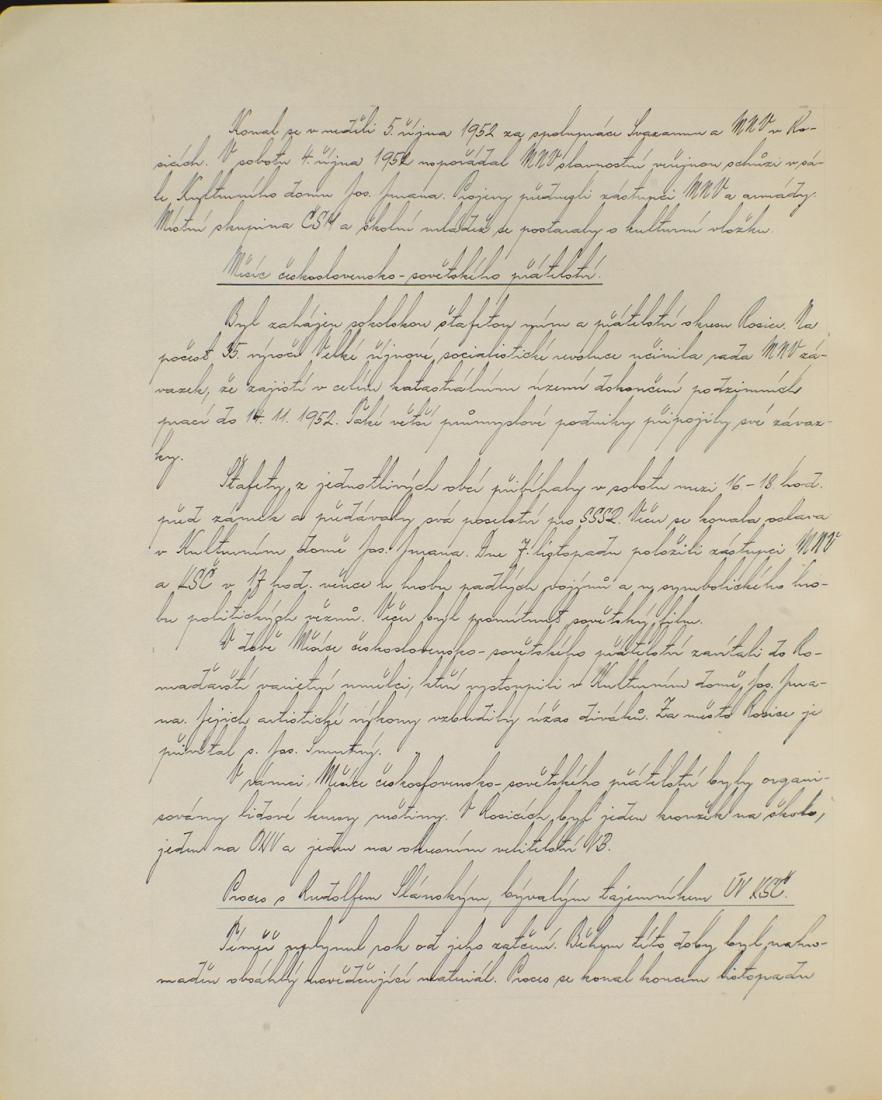 Konal se v neděli 5. října 1952 za spolupráce Svazarmu a MNV v Ro-
sicích. V sobotu 4. října 1952 uspořádal MNV slavnostní veřejnou schůzi v sá-
le Kulturního domu Jos. Jurana. Projevy přednesli zástupci MNV a armády.
Místní skupina ČSM a školní mládež se postaraly o kulturní vložku.
Měsíc československo-sovětského přátelství.
Byl zahájen sokolskou štafetou míru a přátelství okresu Rosice. Na
počest 35. výročí Velké říjnové socialistické revoluce učinila rada MNV zá-
vazek, že zajistí v celém katastrálním území dokončení podzimních
prací do 14. 11. 1952. Také větší průmyslové podniky připojily své závaz-
ky.
Štafety z jednotlivých obcí přibíhaly v sobotu mezi 16-18 hod.
před zámek a předávaly svá poselství pro SSSR. Večer se konala oslava
v Kulturním domě Jos. Jurana. Dne 7. listopadu položili zástupci MNV
a KSČ v 17 hod. věnce k hrobu padlých vojínů a u symbolického hro-
bu politických vězňů. Večer byl promítnut sovětský film.
V době Měsíce československo-sovětského přátelství zavítali do Ro-
maďarští varietní umělci, kteří vystoupili v Kulturním domě Jos. Jura-
na. Jejich artistické výkony vzbudily úžas diváků. Za město Rosice je
přivítal s. Jos. Smutný.
V rámci Měsíce československo-sovětského přátelství byly organi-
sovány lidové kursy ruštiny. V Rosicích byl jeden kroužek na škole,
jeden na ONV a jeden na okresním velitelství VB.
Proces s Rudolfem Slánským, bývalým tajemníkem ÚV KSČ.
Téměř uplynul rok od jeho zatčení. Během této doby byl nahro-
maděn obsáhlý usvědčující materiál. Proces se konal koncem listopadu